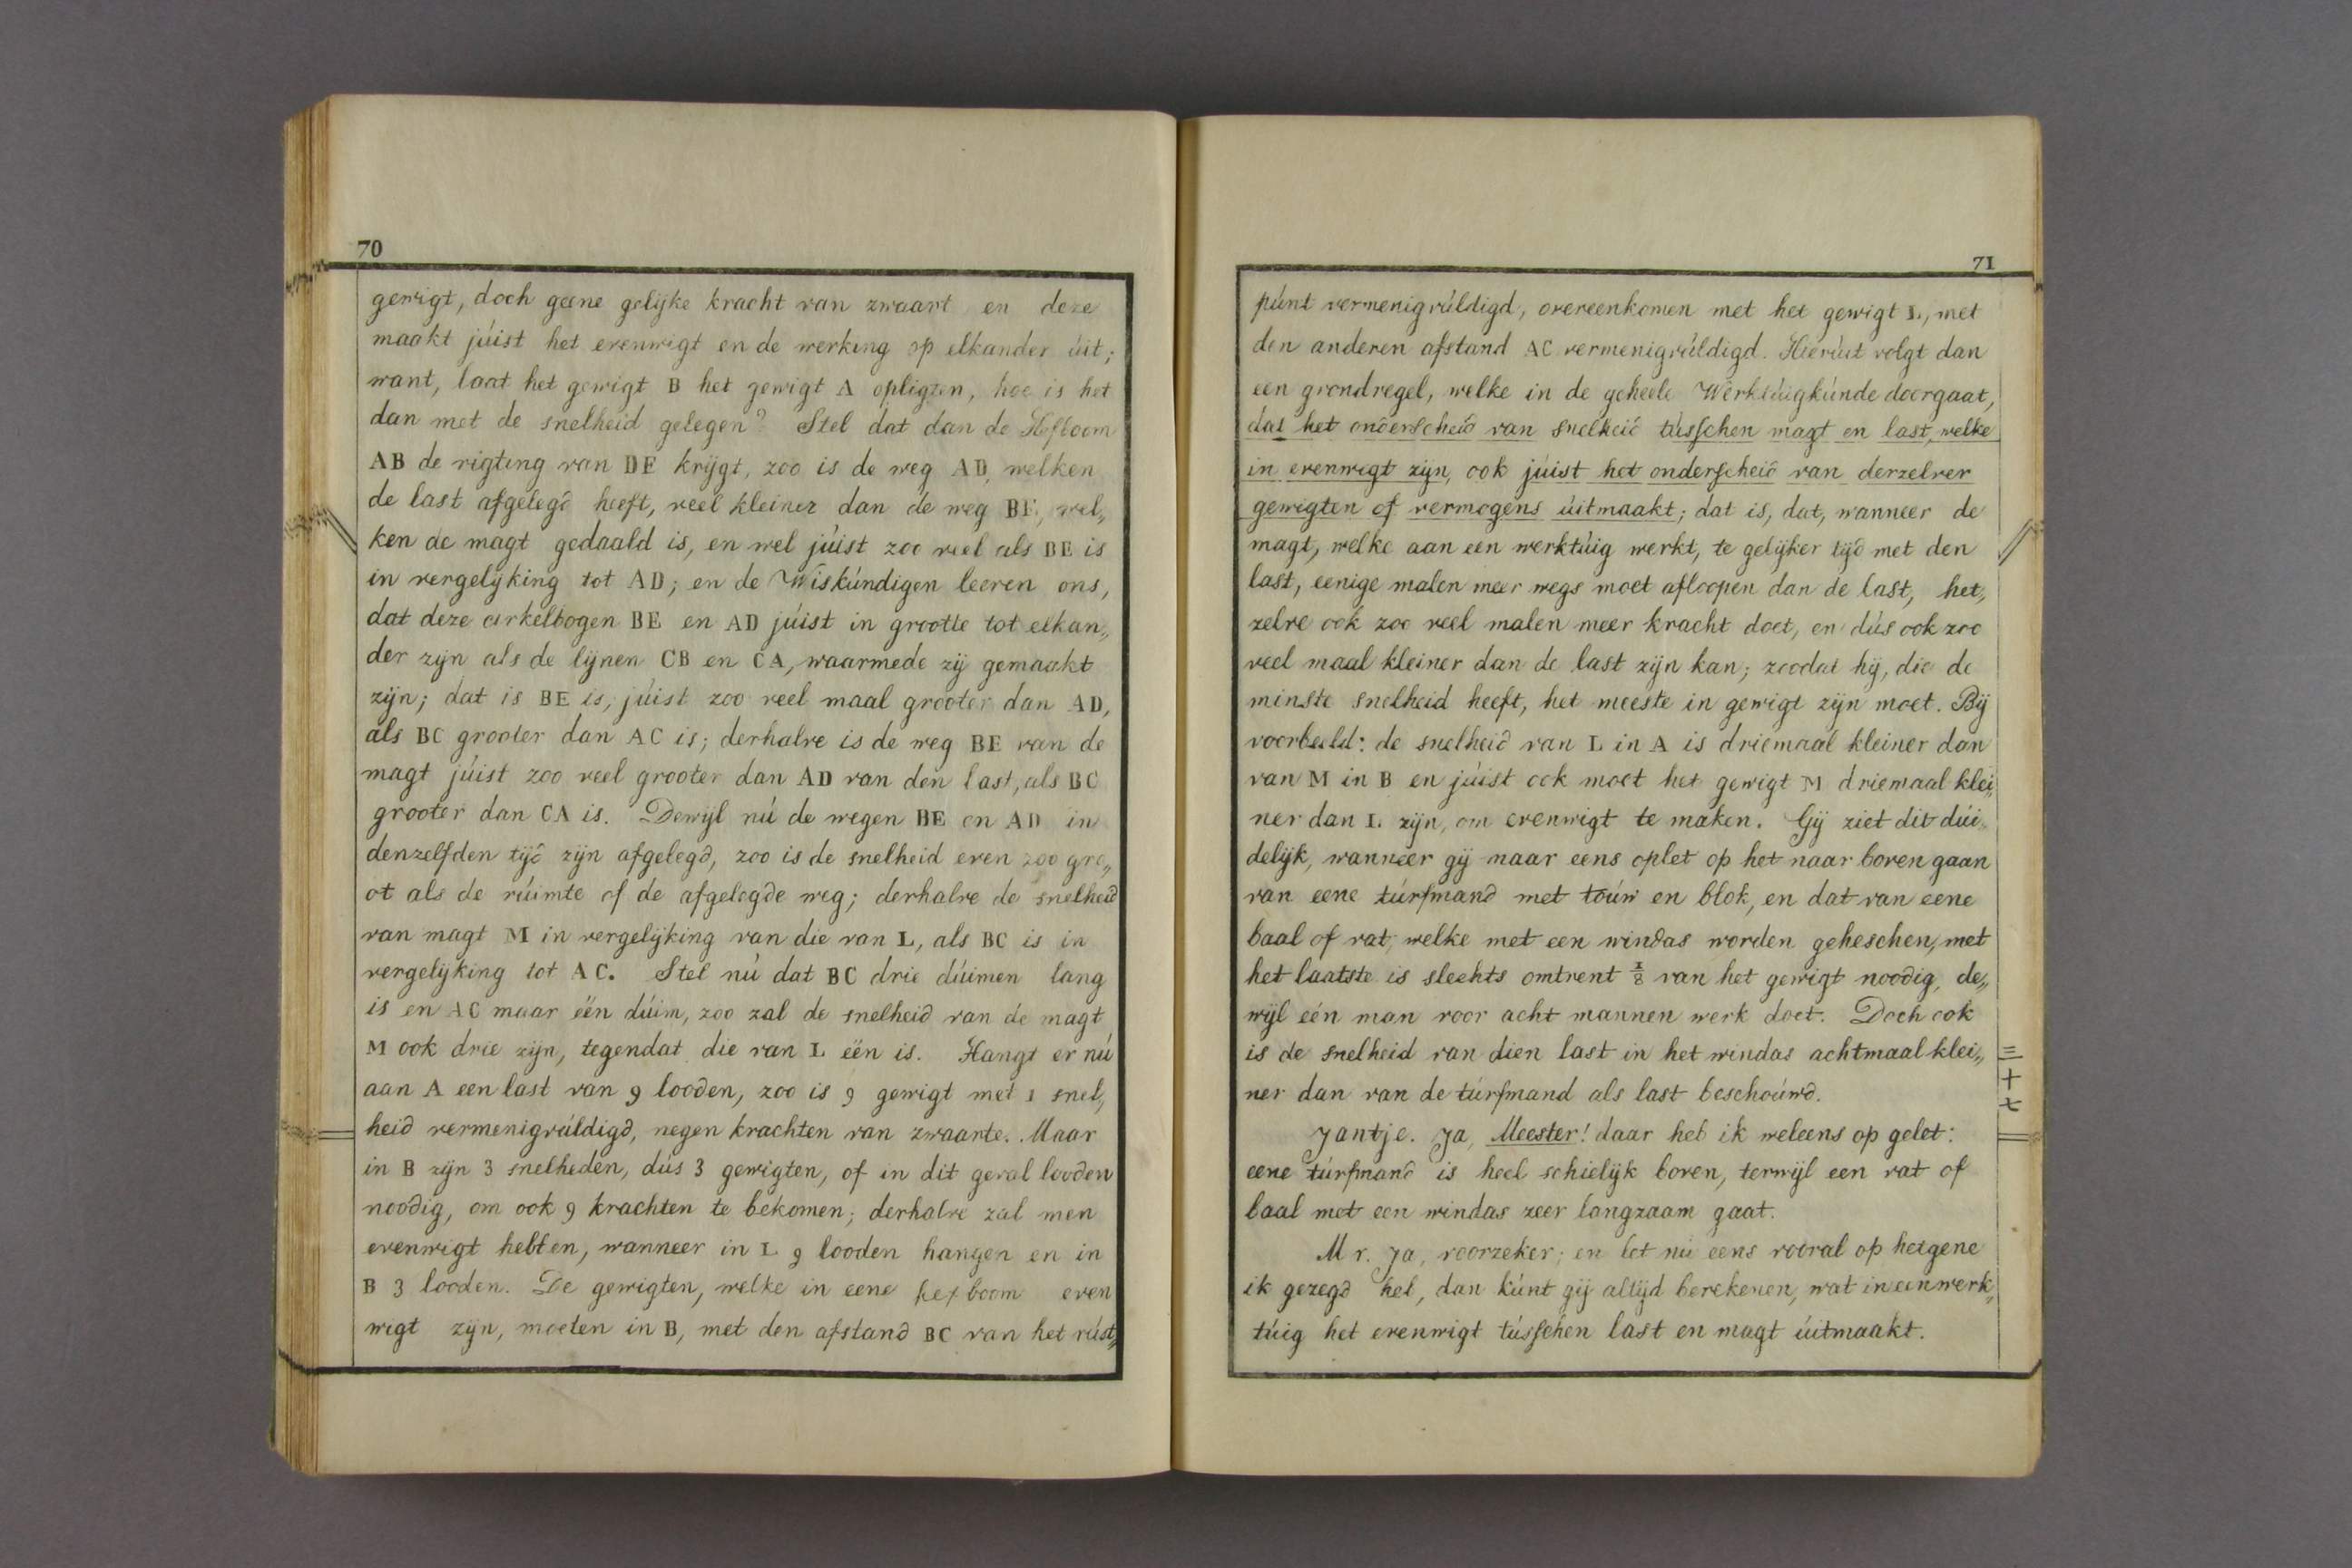 70
gewigt, doch geene gelijke kracht van zwaart en deze
maakt júist het evenwigt en de werking op elkander úit;
want, laat het gewigt B het gewigt A opligten, hoe is het
dan met de snelheid gelegen? Stel dat dan de Hefboom
AB de rigting van DE krijgt, zoo is de weg AD, welken
de last afgelegd heeft, veel kleiner dan de weg BE, wel„
ken de magt gedaald is, en wel júist zoo veel als BE is
in vergelijking tot AD; en de Wiskúndigen leeren ons,
dat deze cirkelbogen BE en AD júist in grootte tot elkan„
der zijn als de lijnen CB en CA, waarmede zij gemaakt
zijn; dat is BE is, júist zoo veel maal grooter dan AD,
als BC grooter dan AC is; derhalve is de weg BE van de
magt júist zoo veel grooter dan AD van den last, als BC
grooter dan CA is. Dewijl nú de wegen BE en AD in
denzelfden tijd zijn afgelegd, zoo is de snelheid even zoo gro„
ot als de rúimte of de afgelegde weg; derhalve de snelheid
van magt M in vergelijking van die van L, als BC is in
vergelijking tot AC. Stel nú dat BC drie dúimen lang
is en AC maar één dúim, zoo zal de snelheid van de magt
M ook drie zijn, tegendat die van L één is. Hangt er nú
aan A een last van 9 looden, zoo is 9 gewigt met 1 snel„
heid vermenigvúldigd, negen krachten van zwaarte. Maar
in B zijn 3 snelheden, dús 3 gewigten, of in dit geval looden
noodig, om ook 9 krachten te bekomen; derhalve zal men
evenwigt hebben, wanneer in L 9 looden hangen en in
B 3 looden. De gewigten, welke in eene hefboom even
wigt zijn, moeten in B, met den afstand BC van het rúst„
71
púnt vermenigvúldigd, overeenkomen met het gewigt L, met
den anderen afstand AC vermenigvúldigd. Hierúit volgt dan
een grondregel, welke in de geheele Werktúigkúnde doorgaat,
dat het onderscheid van snelheid tússchen magt en last, welke
in evenwigt zijn, ook júist het onderscheid van derzelver
gewigten of vermogens úitmaakt; dat is, dat, wanneer de
magt, welke aan een werktúig werkt, te gelijker tijd met den
last, eenige malen meer wegs moet afloopen dan de last, het„
zelve ook zoo veel malen meer kracht doet, en dús ook zoo
veel maal kleiner dan de last zijn kan; zoodat hij, die de
minste snelheid heeft, het meeste in gewigt zijn moet. Bij
voorbeeld: de snelheid van L in A is driemaal kleiner dan
van M in B en júist ook moet het gewigt M driemaal klei„
ner dan L zijn, om evenwigt te maken. Gij ziet dit dúi„
delijk, wanneer gij maar eens oplet op het naar boven gaan
van eene túrfmand met toúw en blok, en dat van eene
baal of vat, welke met een windas worden geheschen, met
het laatste is slechts omtrent 1/8 van het gewigt noodig, de„
wijl één man voor acht mannen werk doet. Doch ook
is de snelheid van dien last in het windas achtmaal klei„
ner dan van de túrfmand als last beschoúwd.
Jantje. Ja, Meester! daar heb ik weleens op gelet:
eene túrfmand is heel schielijk boven, terwijl een vat of
baal met een windas zeer langzaam gaat.
Mr. Ja, voorzeker; en let nú eens vooral op hetgene
ik gezegd heb, dan kúnt gij altijd berekenen, wat in een werk„
túig het evenwigt tússchen last en magt úitmaakt.